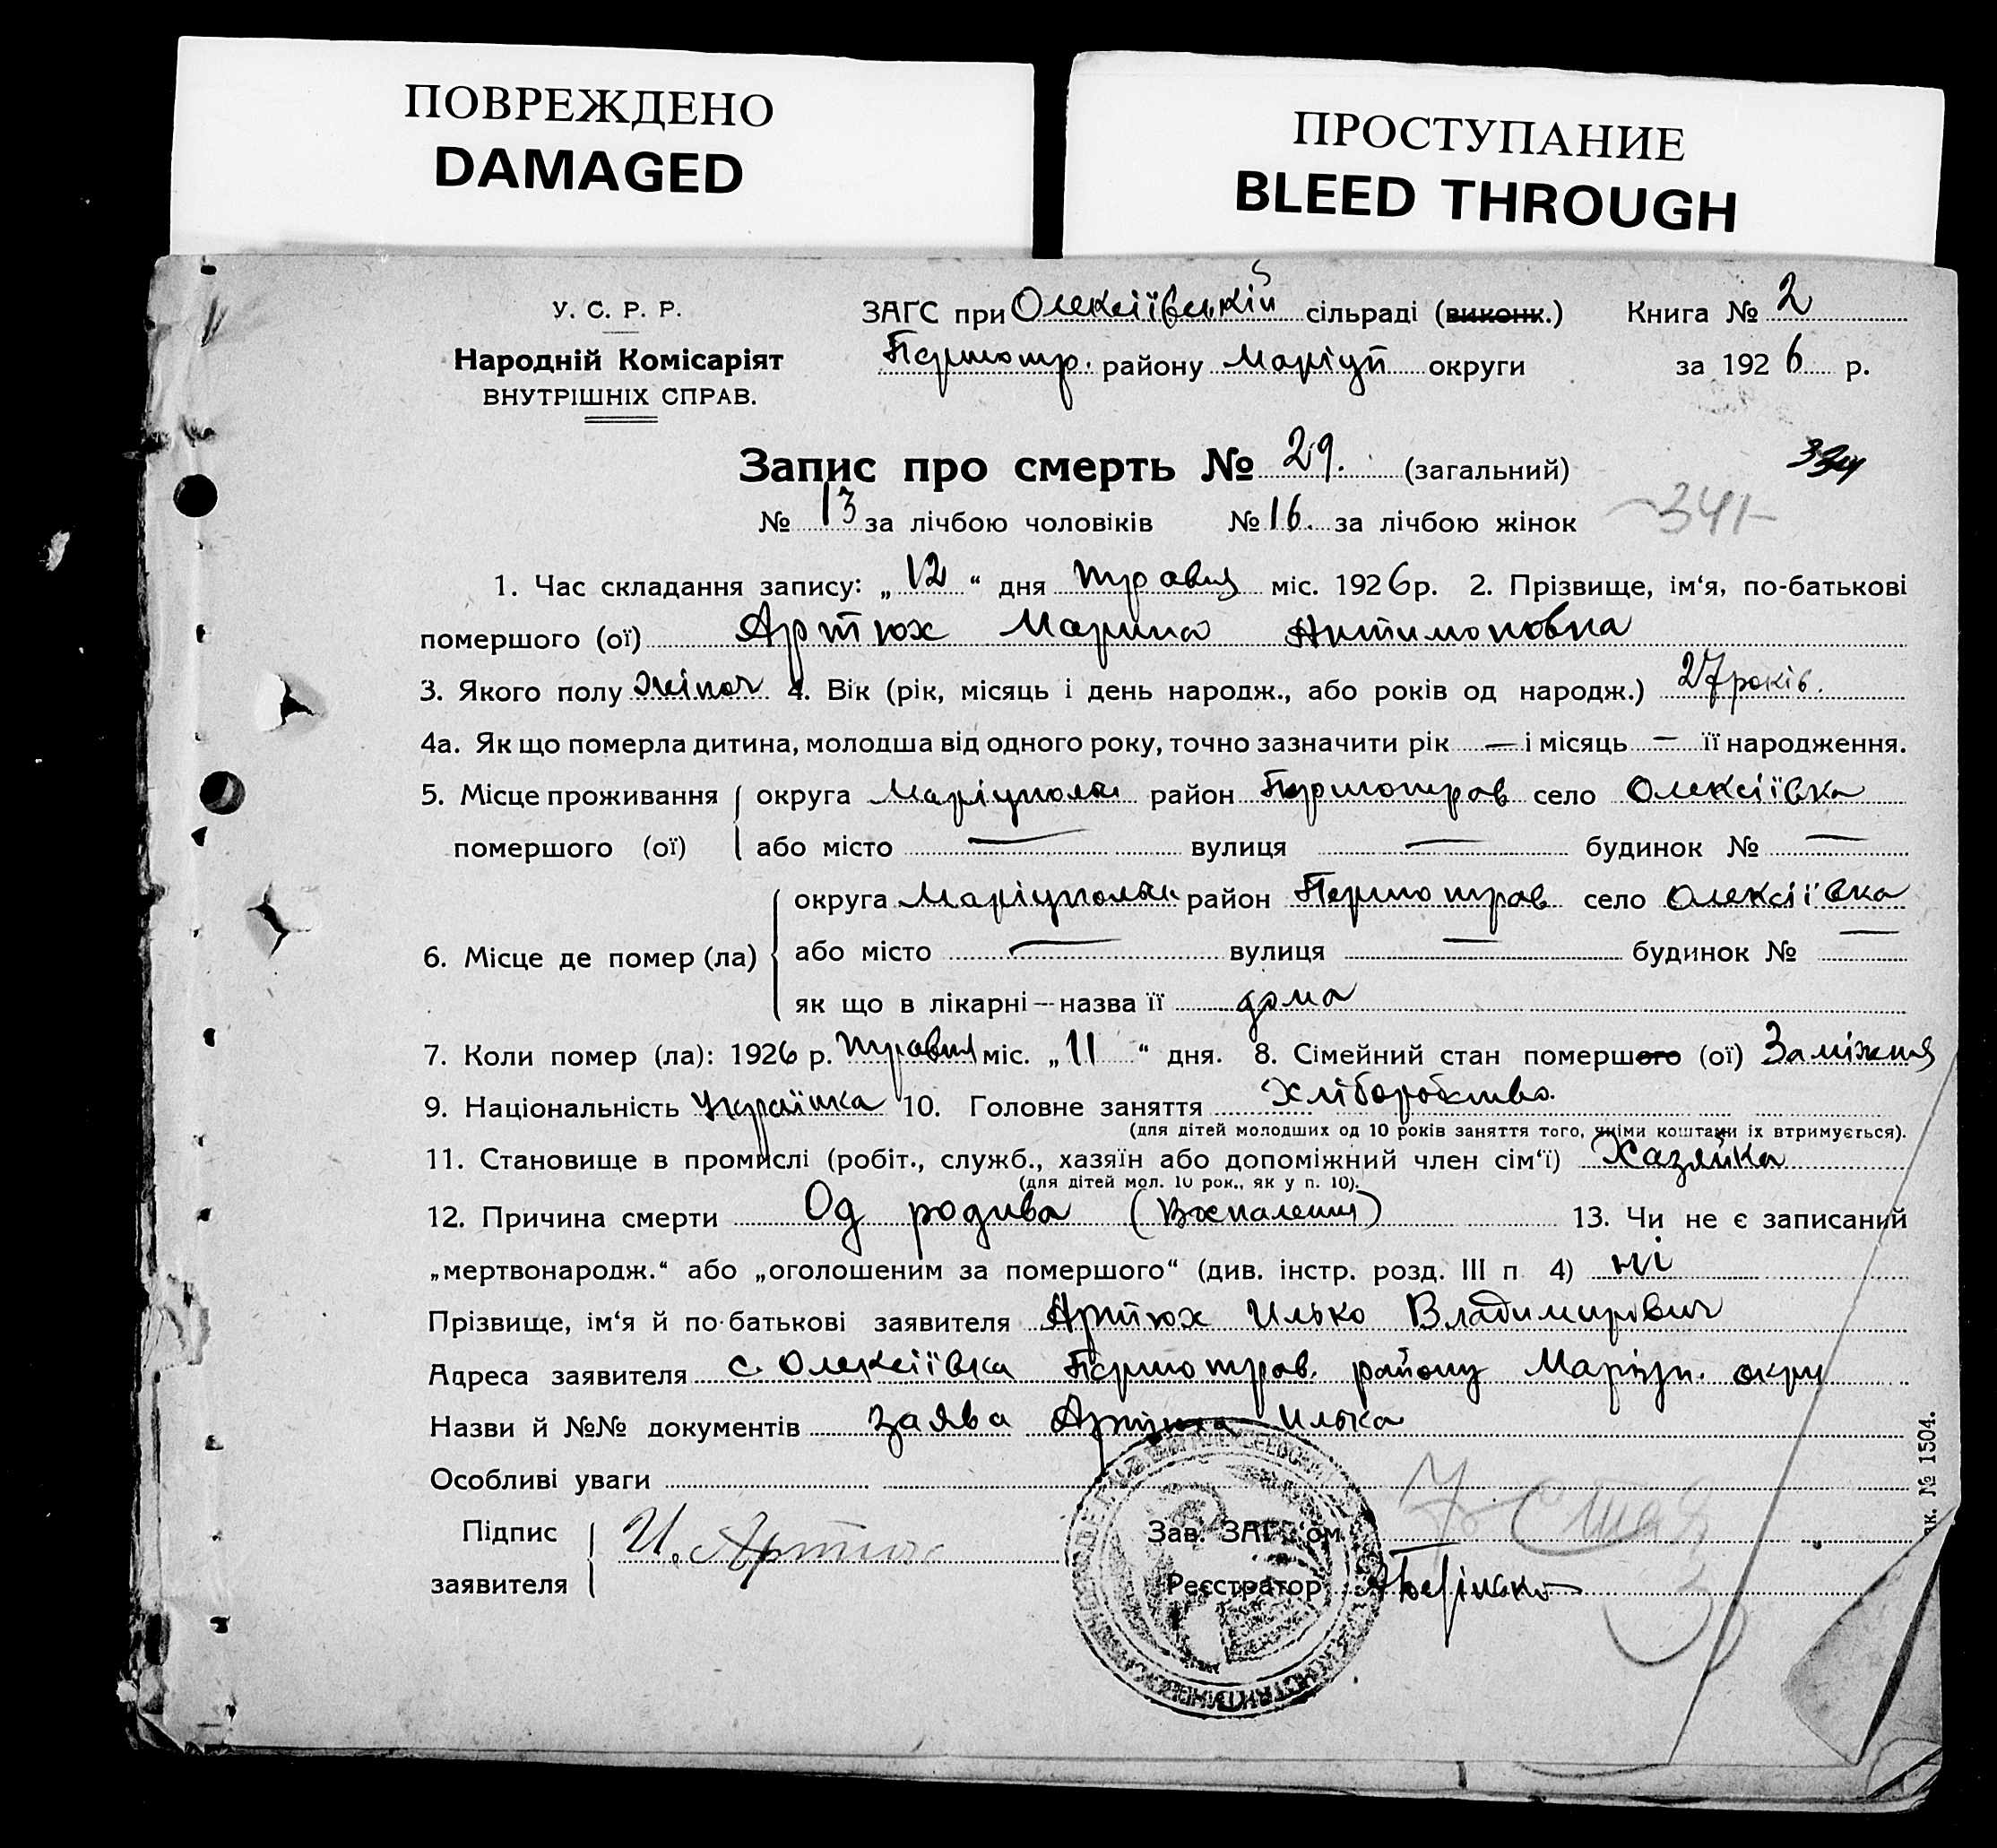 ПОВРЕЖДЕНО
DAMAGED
ПРОСТУПАНИЕ
BLEED THROUGH
У. С. Р. Р.
Народній Комісаріят
ВНУТРІШНІХ СПРАВ.
ЗАГС при Олексіївській сільраді (виконк.) Книга № 2
Першотр. району Маріуп округи за 1926 р.
Запис про смерть № 29. (загальний)
№ 13 за лічбою чоловіків № 16. за лічбою жінок
341
1. Час складання запису: „12“ дня травня міс. 1926 р. 2. Прізвище, ім‘я, по-батькові
помершого (ої) Артюх Марина Антимоновна
3. Якого полу жіноч 4. Вік (рік, місяць і день народж., або років од народж.) 27 років.
4а. Як що померла дитина, молодша від одного року, точно зазначити рік — і місяць — її народження.
5. Місце проживання округа Маріупольськ район Першотрав село Олексіївка
помершого (ої) або місто — вулиця — будинок № —
округа Маріупольськ район Першотрав село Олексіївка
6. Місце де помер (ла) або місто — вулиця — будинок № —
як що в лікарні — назва її дома
7. Коли помер (ла): 1926 р. травня міс. „11“ дня. 8. Сімейний стан помершого (ої) Заміжня
9. Національність Українка 10. Головне заняття Хліборобство.
(для дітей молодших од 10 років заняття того, чиїми коштами їх втримується).
11. Становище в промислі (робіт., служб., хазяїн або допоміжний член сім‘ї) Хазяйка
(для дітей мол. 10 рок., як у п. 10).
12. Причина смерти Од родива (Воспалення) 13. Чи не є записаний
„мертвонародж.“ або „оголошеним за помершого“ (див. інстр. розд. III п 4) ні
Прізвище, ім‘я й по-батькові заявителя Артюх Илько Владимирович
Адреса заявителя с. Олексіївка Першотрав. району Маріуп. окру
Назви й №№ документів заява Артюха Илька
Особливі уваги
Підпис заявителя И. Артюх
Зав. ЗАГС‘ом
Реєстратор
№ 1504.